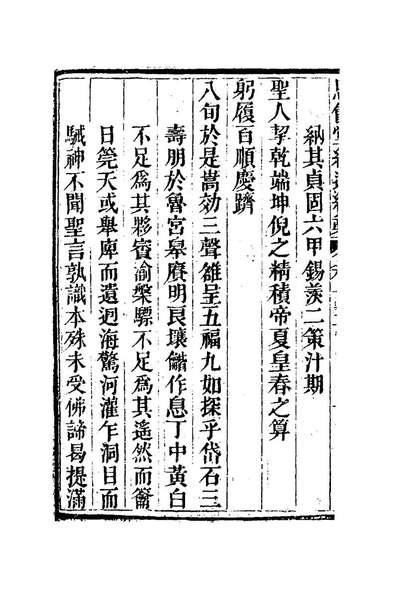 納其貞固六甲錫羨二策汁期
聖人挈乾端坤倪之精積帝夏皇春之算
躬履百順慶躋
八旬於是嵩効三聲雒呈五福九如探乎岱石三
壽朋於魯宮皋賡明良壤作息丁中黃白
不足爲其夥賓渝槃驃不足爲其遙然而籥
日筦天或舉庳而遺迥海驚河灌乍洞目而
駴神不聞聖言孰識本殊未受佛諦曷提滿